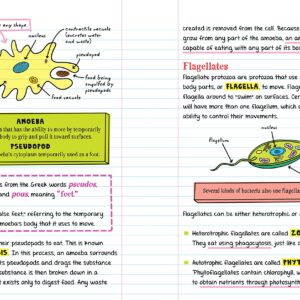 any shape.
nucleus
contractile vacuole
(excretes water
and waste)
pseudopod
food being
engulfed by
pseudopods
food vacuole
AMOEBA
that has the ability to move by temporarily
body to grip and pull it toward surfaces.
PSEUDOPOD
amoeba's cytoplasm temporarily used as a foot.
from the Greek words pseudos,
and pous, meaning "feet."
false feet," referring to the temporary
amoeba's body that it uses to move.
their pseudopods to eat. This is known
In this process, an amoeba surrounds
its pseudopods and drags the substance
substance is then broken down in a
exists only to digest food. Any waste
created is removed from the cell. Because
grow from any part of the amoeba, an
capable of eating with any part of its
Flagellates
Flagellate protozoa are protozoa that use
body parts, or FLAGELLA, to move. Flage
flagella around to "swim" on surfaces. Cer
will have more than one flagellum, which
ability to control their movements.
nucleus
flagellum
Several kinds of bacteria also use flagel
Flagellates can be either heterotrophic or
Heterotrophic flagellates are called ZO
They eat using phagocytosis, just like
Autotrophic flagellates are called PHYT
Phytoflagellates contain chlorophyll, w
to obtain nutrients through photosynt